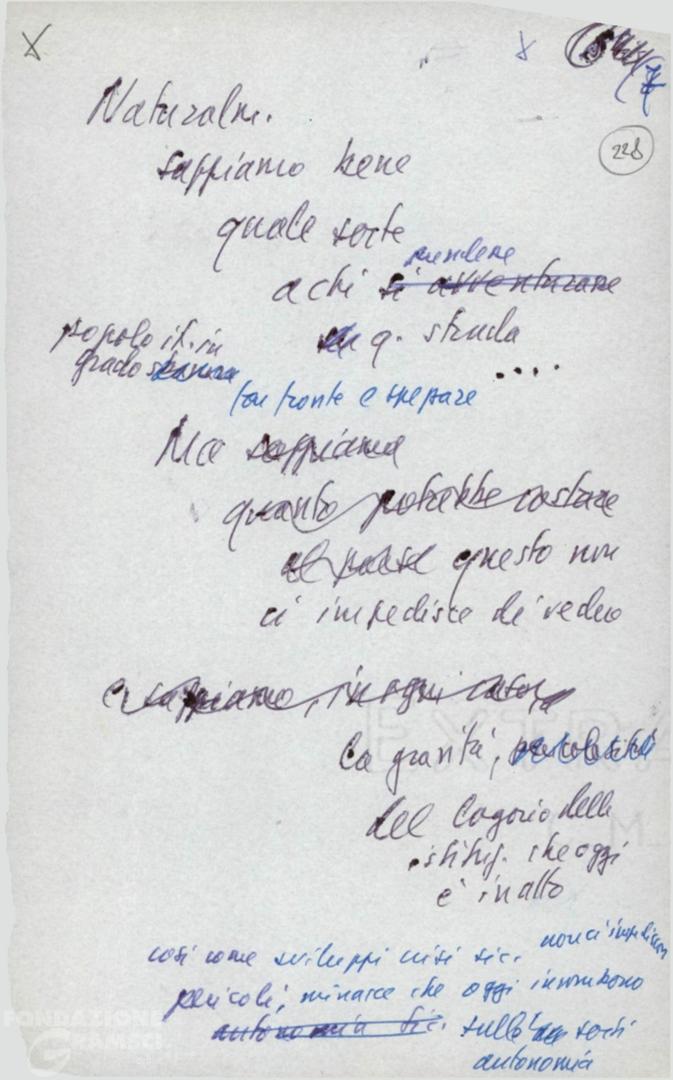 X
228
Naturalm.
sappiamo bene
quale sorte
prendere
a chi si avventurare
q. strada
popolo it. in
grado
....
far fronte e spezzare
Ma sappiamo
quanto potrebbe costare
al paese questo non
ci impedisce di vedere
e sappiamo, in ogni caso,
la gravità, pericolosità
del logorio delle
istituz. che oggi
è in atto
non ci impedisce
così come sviluppi crisi sic.
pericoli, minacce che oggi incombono
autonomia sic. sulle sorti
autonomia
FONDAZIONE
GRAMSCI